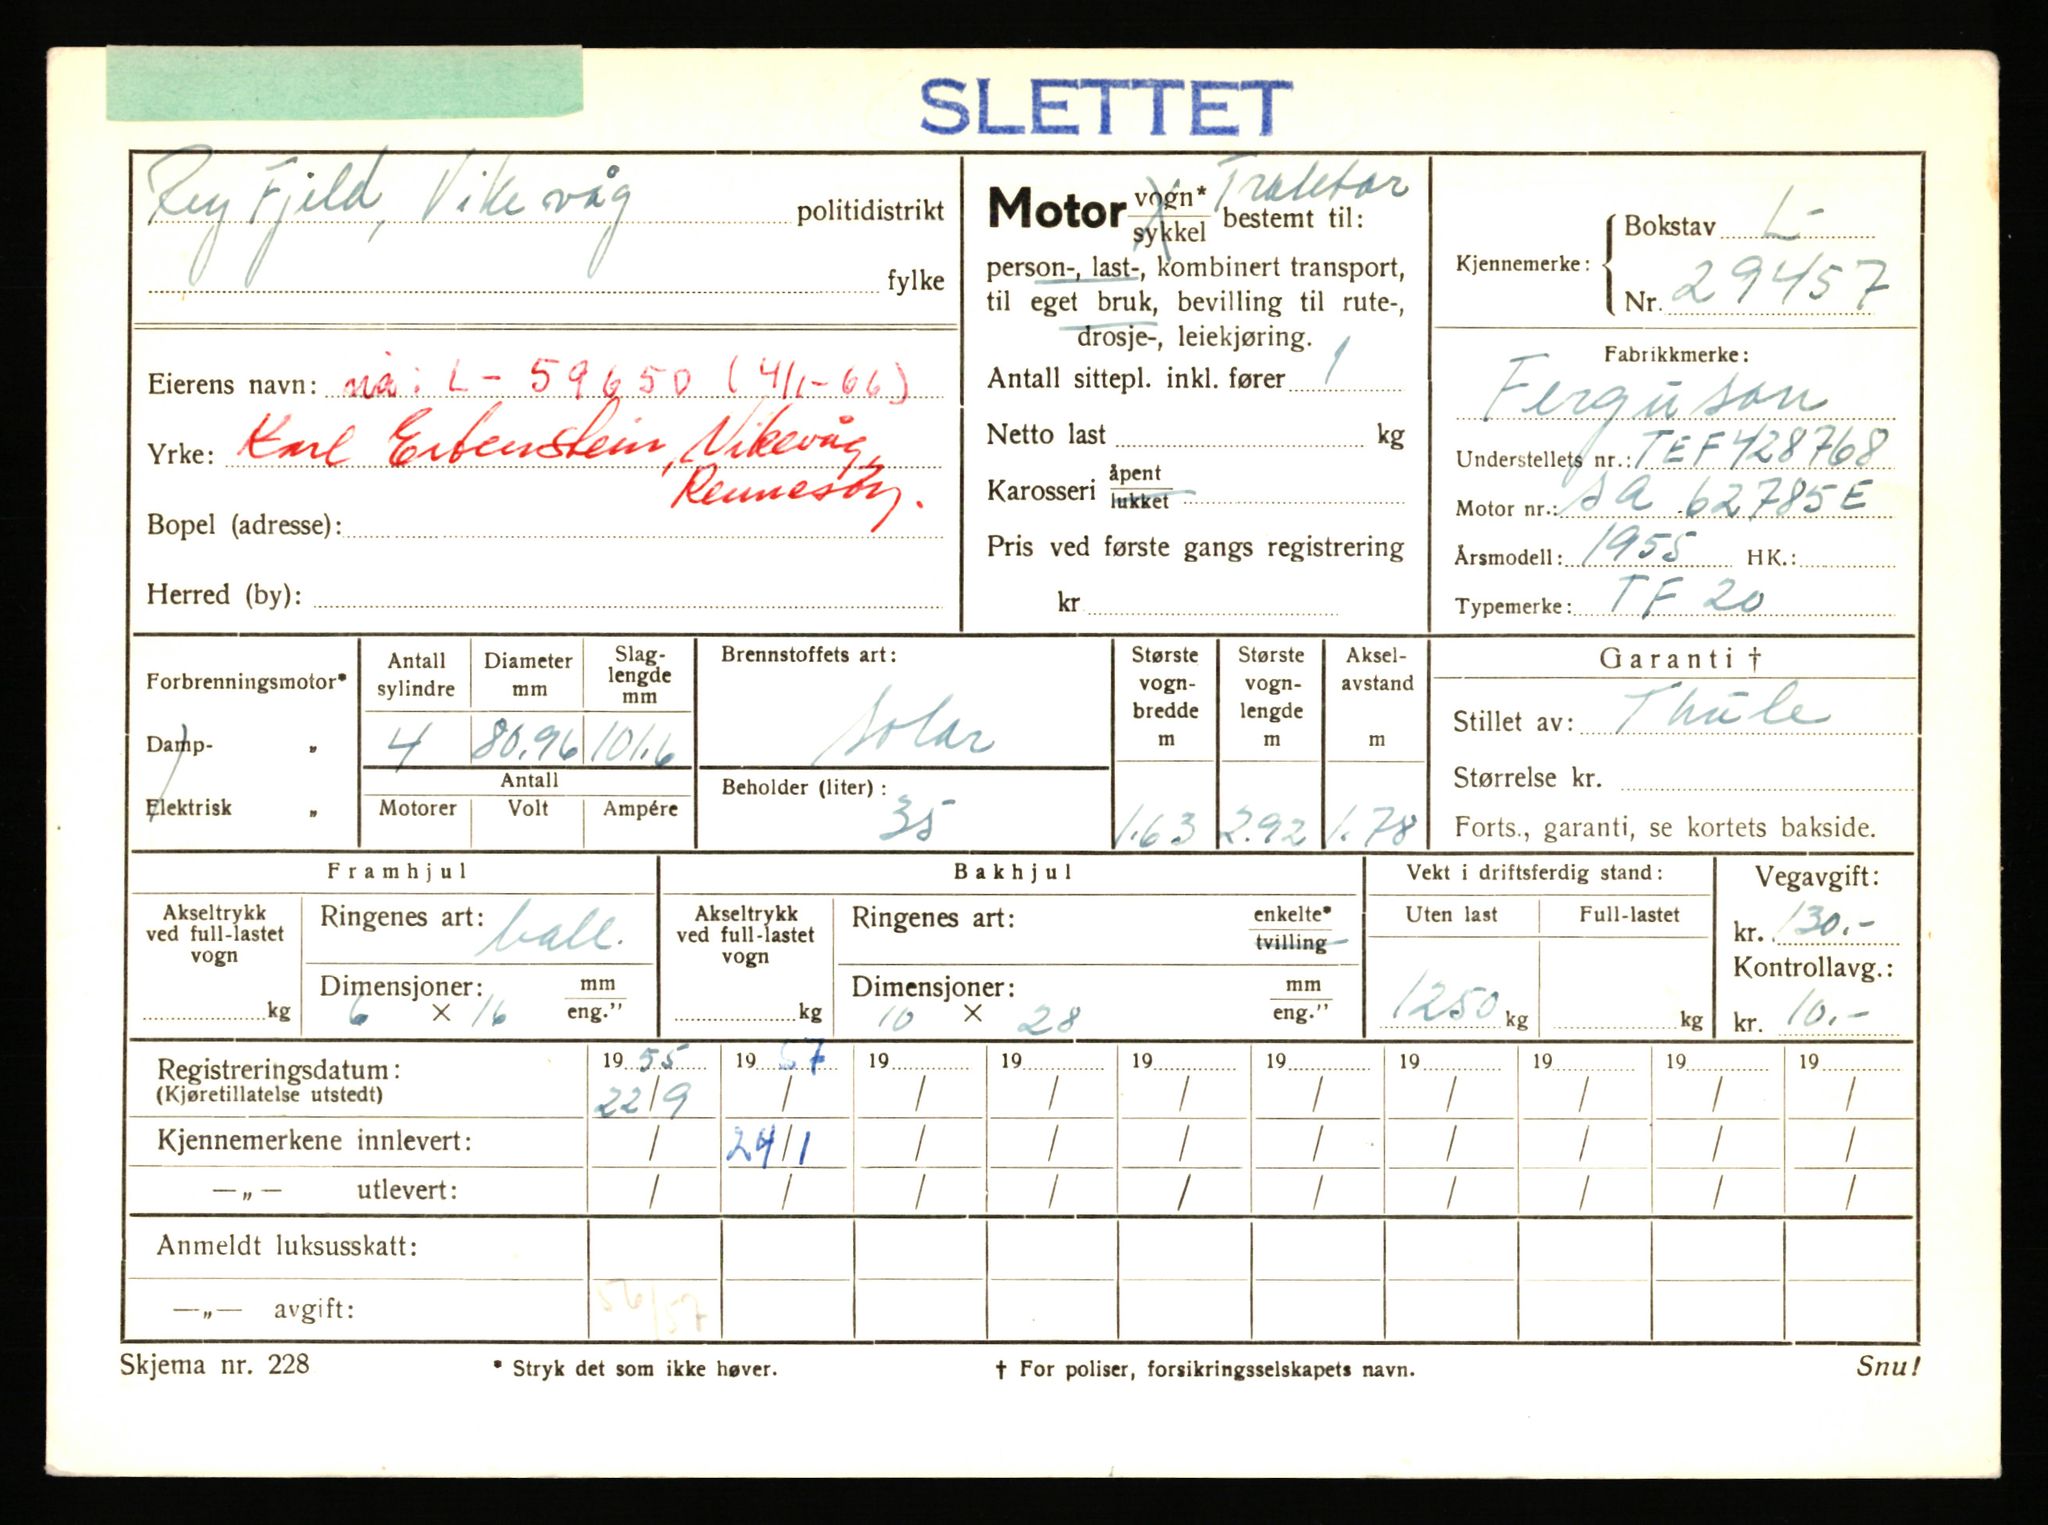 SLETTET
Rey Fjeld, Vikevåg politidistrikt
fylke
Eierens navn: nå: L - 59650 (4/1-66)
Yrke: Karl Erbenstein, Vikevåg,
Rennesøy.
Bopel (adresse):
Herred (by):
Traktor
Motor vogn* / sykkel bestemt til:
person-, last-, kombinert transport,
til eget bruk, bevilling til rute-,
drosje-, leiekjøring.
Antall sittepl. inkl. fører 1
Netto last kg
Karosseri åpent / lukket
Pris ved første gangs registrering
kr
Kjennemerke: Bokstav L-
Nr. 29457
Fabrikkmerke:
Ferguson
Understellets nr.: TEF428768
Motor nr.: SA 62785E
Årsmodell: 1955 HK.:
Typemerke: TF 20
Forbrenningsmotor*
Damp- „
Elektrisk „
Antall sylindre Diameter mm Slag-lengde mm
4 80,96 101,6
Antall
Motorer Volt Ampére
Brennstoffets art:
solar
Beholder (liter):
35
Største vogn-bredde m Største vogn-lengde m Aksel-avstand m
1.63 2.92 1.78
Garanti †
Stillet av: Thule
Størrelse kr.
Forts., garanti, se kortets bakside.
Framhjul
Akseltrykk ved full-lastet vogn
kg
Ringenes art: ball.
Dimensjoner: mm / eng."
6 × 16
Bakhjul
Akseltrykk ved full-lastet vogn
kg
Ringenes art: enkelte* / tvilling
Dimensjoner: mm / eng."
10 × 28
Vekt i driftsferdig stand:
Uten last Full-lastet
1250 kg kg
Vegavgift:
kr. 130.-
Kontrollavg.:
kr. 10.-
Registreringsdatum: 1955 1957 19 19 19 19 19 19 19 19
(Kjøretillatelse utstedt) 22/9 / / / / / / / / /
Kjennemerkene innlevert: / 24/1 / / / / / / / /
—„— utlevert: / / / / / / / / / /
Anmeldt luksusskatt:
—„— avgift: 56/57
Skjema nr. 228 * Stryk det som ikke høver. † For poliser, forsikringsselskapets navn. Snu!